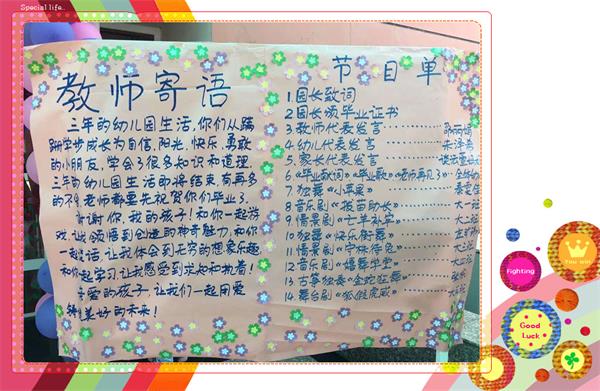 Special life..
教师寄语
三年的幼儿园生活,你们从蹒
跚学步成长为自信,阳光,快乐,勇敢
的小朋友,学会了很多知识和道理.
三年的幼儿园生活即将结束,有再多
的不舍,老师都要先祝贺你们毕业了.
谢谢你,我的孩子!和你一起游
戏,让我领悟到创造的神奇魅力,和你
一起 话,让我体会到无穷的想象乐趣
和你一起学习,让我感受到求知和执着!
亲爱的孩子,让我们一起用爱
美好的未来!
节目单
1.园长致词
2.园长颁毕业证书
3.教师代表发言
4.幼儿代表发言
5.家长代表发言
6.《毕业歌词》《毕业歌》《老师再见了》
7.独舞《小苹果》
8.音乐剧《拔苗助长》
9.情景剧《亡羊补牢》
10.独舞《快乐街舞》
11.情景剧《守株待兔》
12.音乐剧《嬉舞学堂》
13.古筝独奏《金蛇狂舞》
14.舞台剧《狐假虎威》
YOU WIN
Fighting
Good
Luck